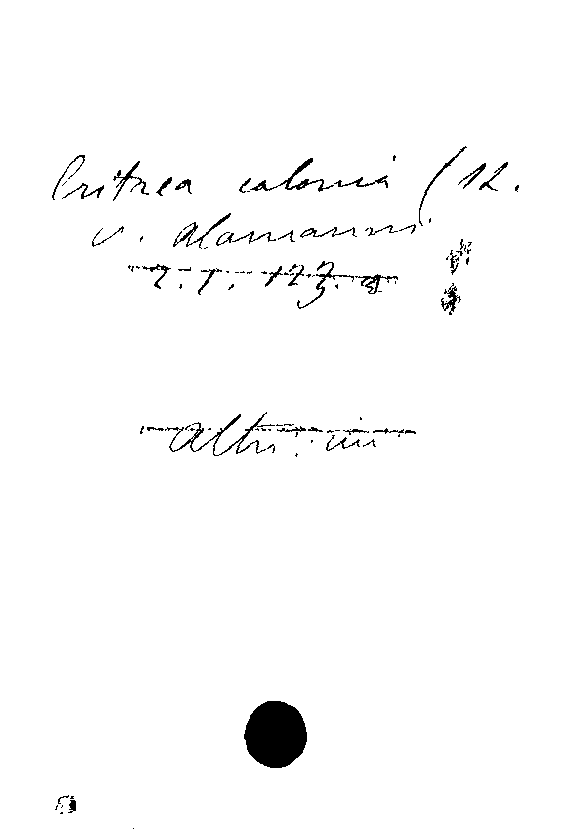 Eritrea colonia (La
v. Alamanni
2. 1. 123. a
Altri: